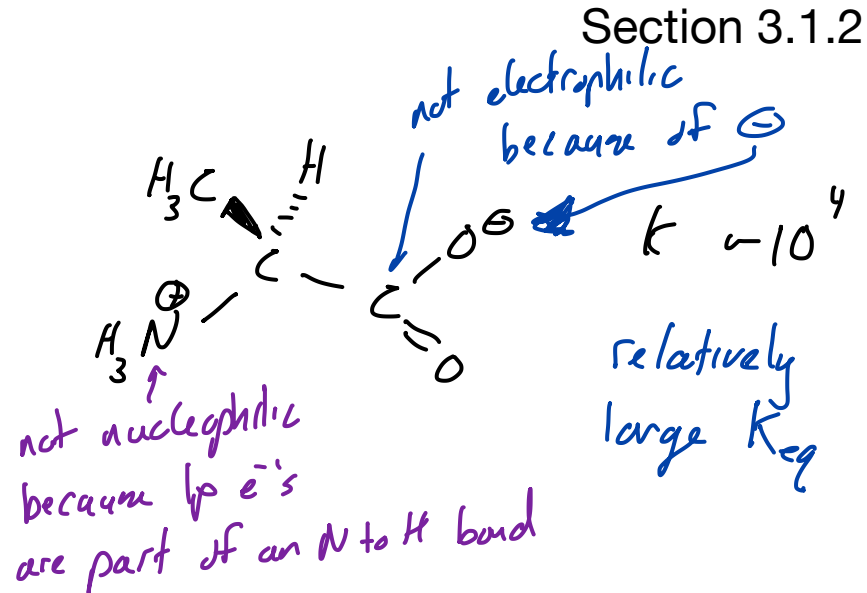 Section 3.1.2
not electrophilic
because of ⊖
H₃C H
C C O⊖
K ~10⁴
H₃N⊕
O
relatively
large Keq
not nucleophilic
because lp e⁻'s
are part of an N to H bond